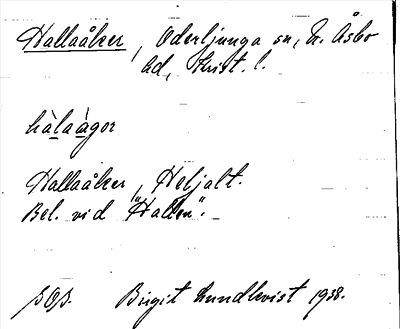 Hallaåker, Oderljunga sn, N. Åsbo
hd, Krist. l.
hàlaàgor
Hallaåker, Heljalt.
Bel. vid "Hallen".
SOS. Birgit Lundkvist 1938.